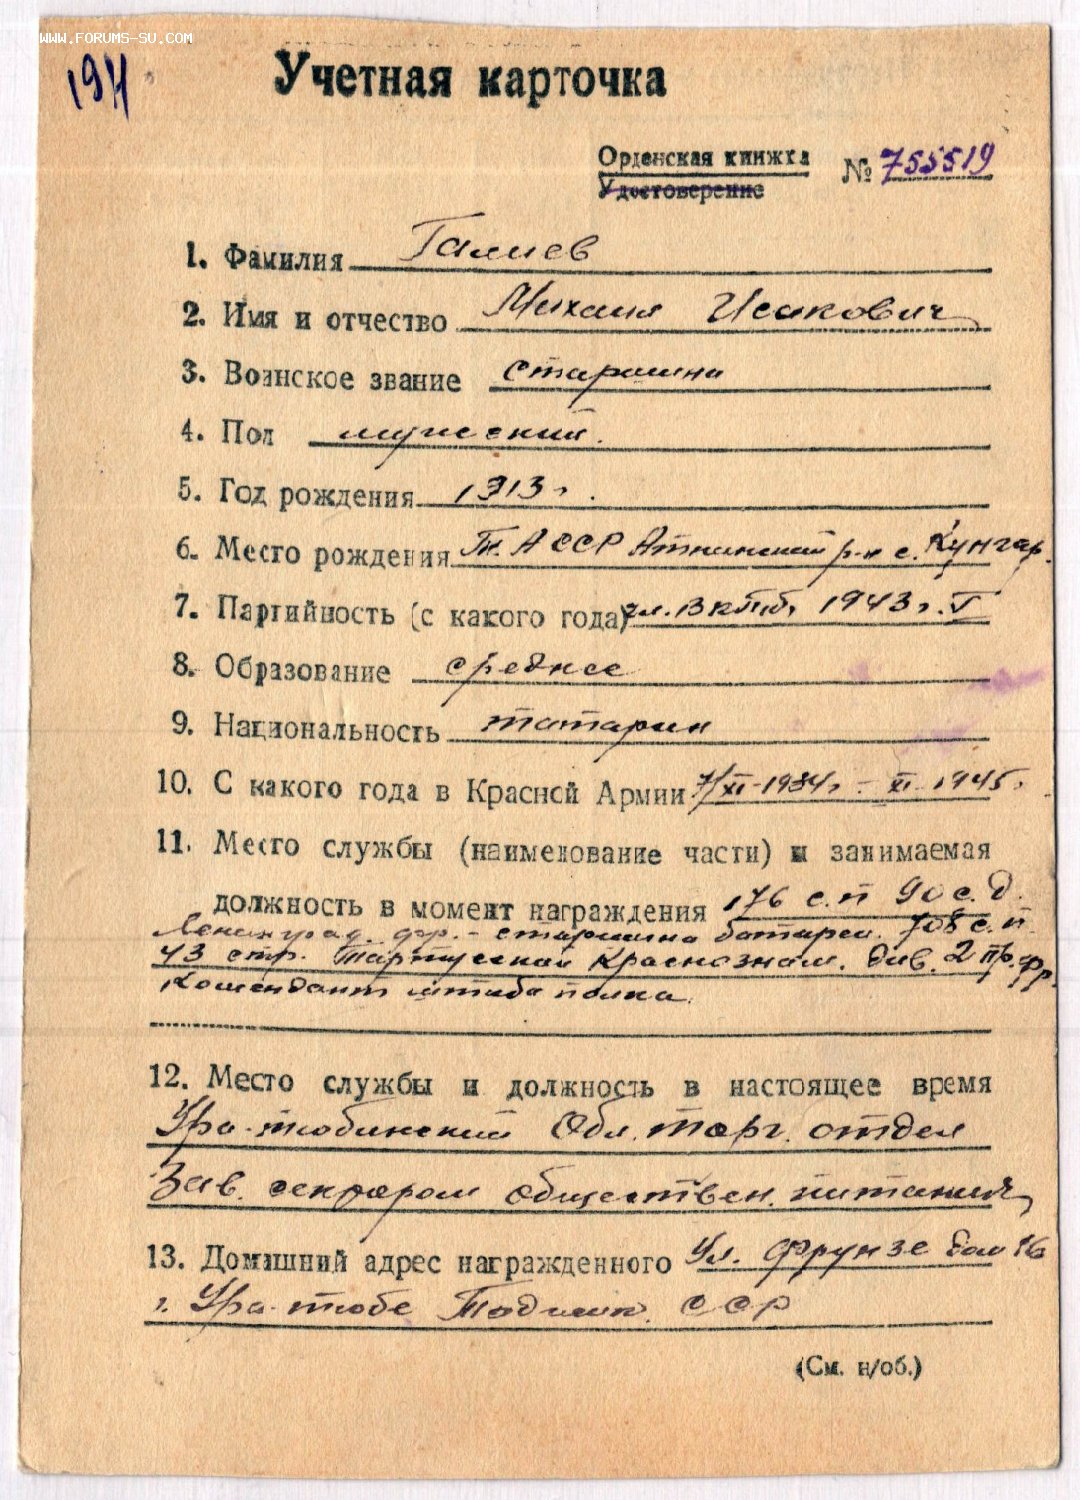 WWW.FORUMS-SU.COM
Учетная карточка
Орденская книжка № 755519
Удостоверение
1. Фамилия Галиев
2. Имя и отчество Михаил Исакович
3. Воинское звание старшина
4. Пол мужской.
5. Год рождения 1913 г.
6. Место рождения Т. АССР Атнинский р-н с. Кунгер.
7. Партийность (с какого года) чл. ВКПб, 1943 г. V
8. Образование среднее
9. Национальность татарин
10. С какого года в Красной Армии 7/XI-1934г - XI-1945г
11. Место службы (наименование части) и занимаемая
должность в момент награждения 176 с.п 90 с.д.
Ленинград. фр. - старшина батареи. 708 с.п.
43 стр. Тартусской Краснознам. див. 2 пр. фр.
Комендант штаба полка.
12. Место службы и должность в настоящее время
Ура-тюбинский Обл. торг. отдел
Зав. сектором обществен. питания
13. Домашний адрес награжденного Ул. Фрунзе дом 16
г. Ура-тюбе Таджик. ССР
(См. н/об.)